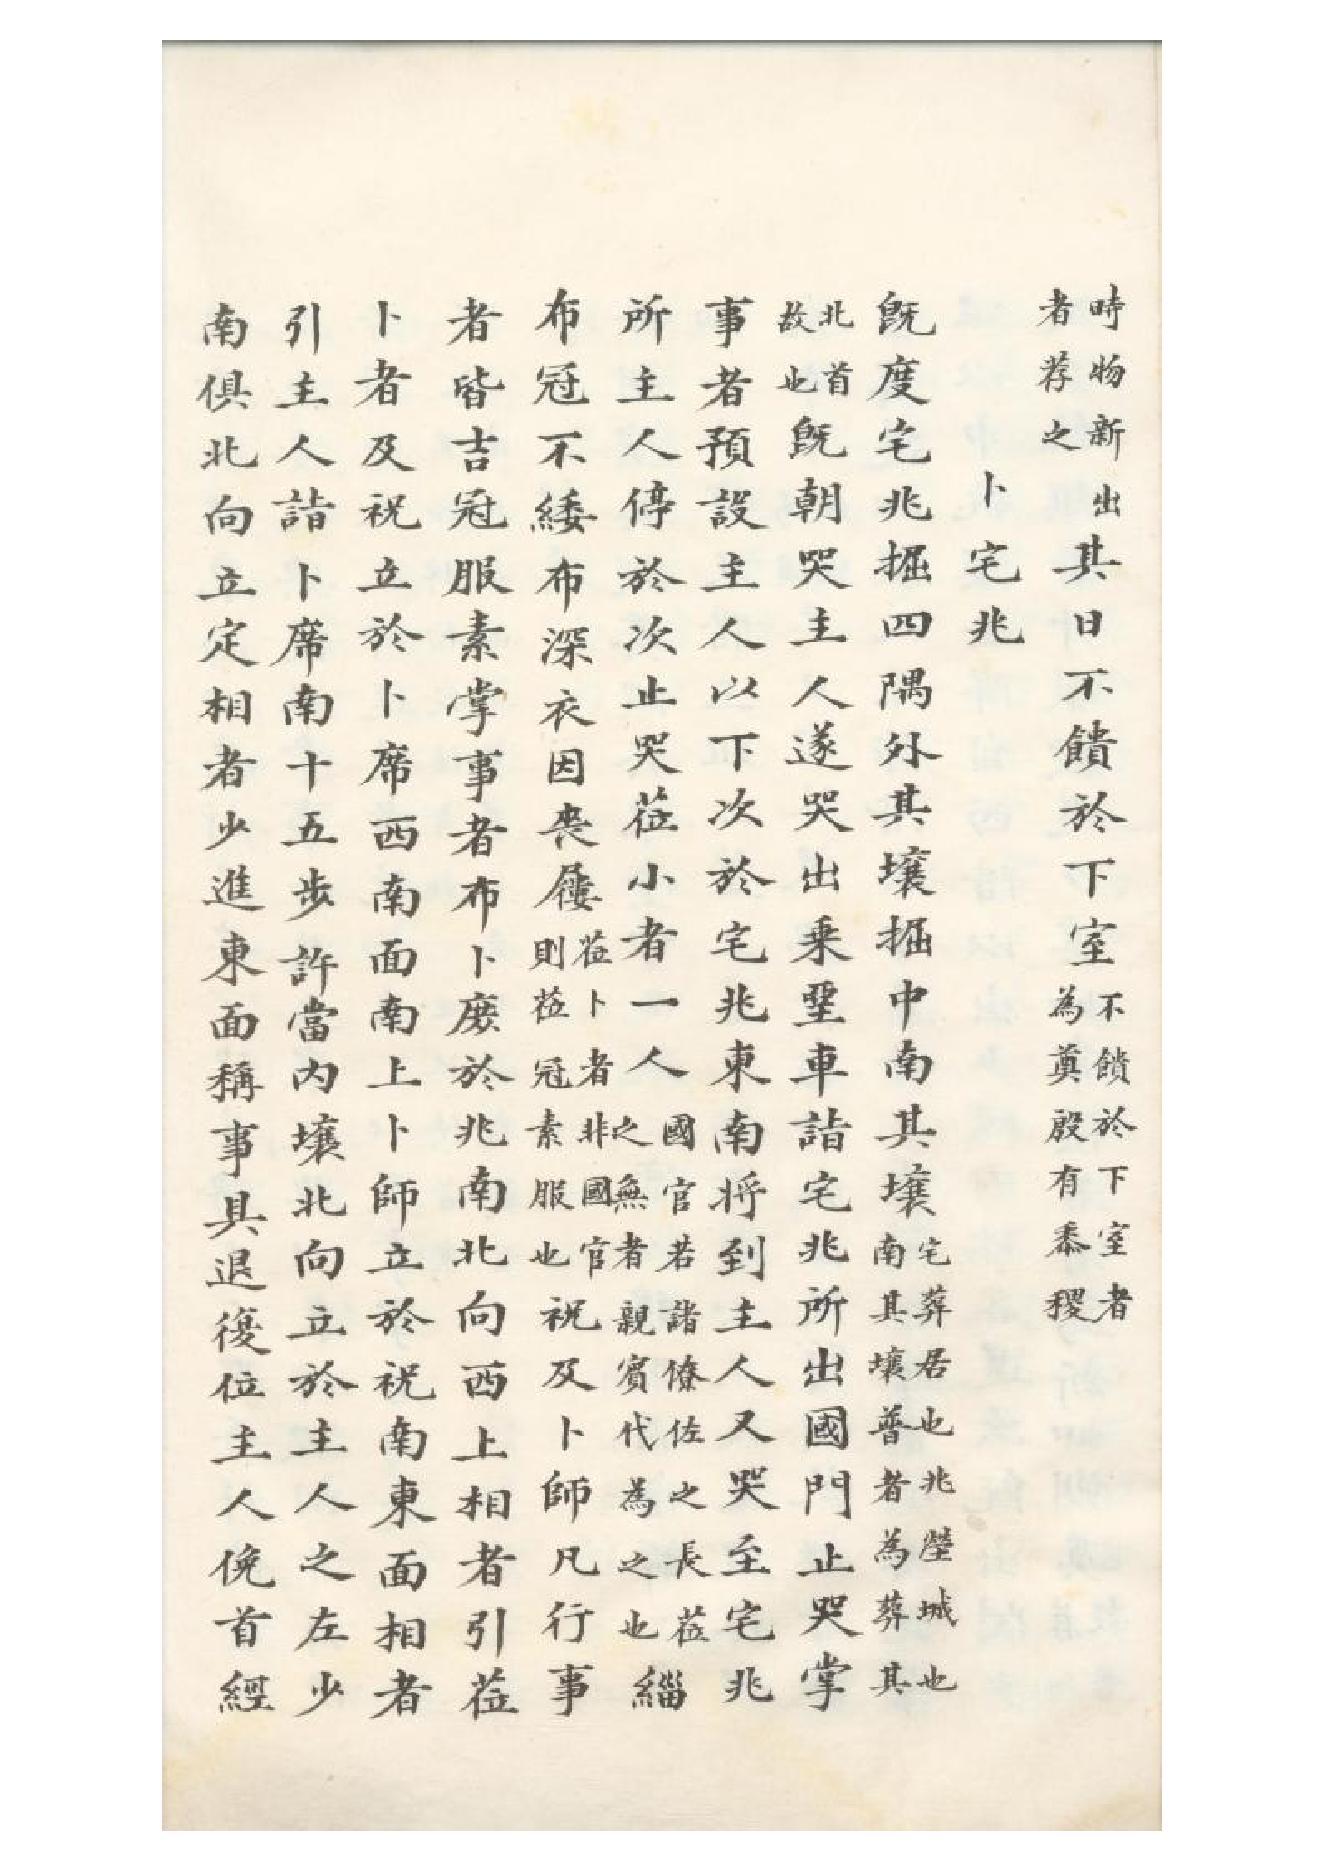 時物新出者荐之其日不饋於下室不饋於下室者為奠殷有黍稷
卜宅兆
既度宅兆掘四隅外其壤掘中南其壤宅葬居也兆塋城也南其壤普者為葬其
北首故也既朝哭主人遂哭出乗堊車詣宅兆所出國門止哭掌
事者預設主人以下次於宅兆東南將到主人又哭至宅兆
所主人停於次止哭蒞小者一人國官若諸僚佐之長蒞之無者親賓代為之也緇
布冠不緌布深衣因喪屨蒞卜者非國官則蒞冠素服也祝及卜師凡行事
者皆吉冠服素掌事者布卜席於兆南北向西上相者引蒞
卜者及祝立於卜席西南面南上卜師立於祝南東面相者
引主人詣卜席南十五步許當內壤北向立於主人之左少
南俱北向立定相者少進東面稱事具退復位主人俛首經